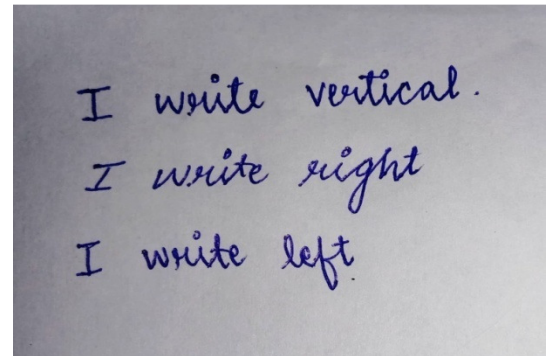 I write vertical.
I write right
I write left.